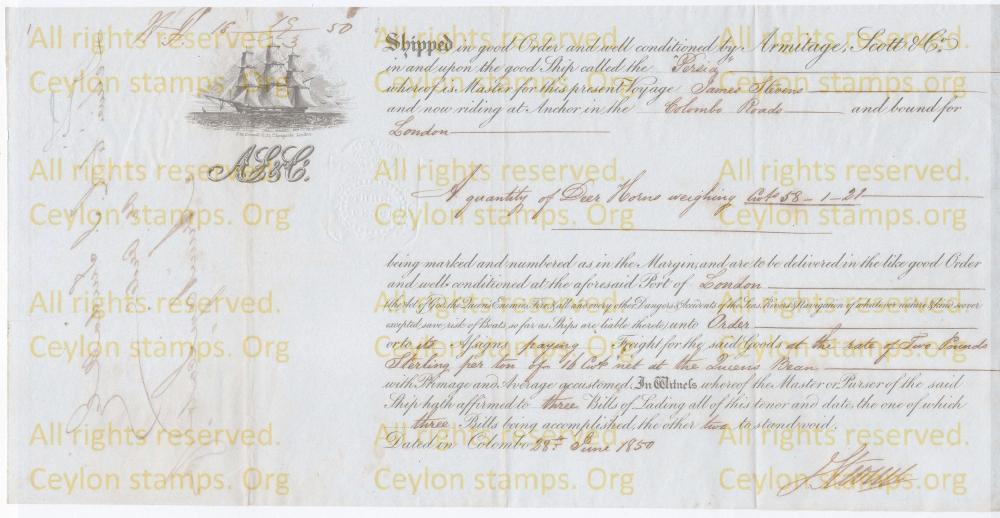 Shipped in good Order and well conditioned by Armitage, Scott & Co.
in and upon the good Ship called the "Persia"
whereof is Master for this present Voyage James Stevens
and now riding at Anchor in the Colombo Roads and bound for
London
AS&C.
A quantity of Deer Horns weighing Cwts 58-1-21
being marked and numbered as in the Margin, and are to be delivered in the like good Order
and well conditioned at the aforesaid Port of London
the Act of God, the Queens Enemies, Fire & all and every other Dangers & Accidents of the Seas, Rivers & Navigation of whatever nature & kind soever
excepted, save risk of Boats, so far as Ships are liable thereto, unto Order
or to its Assigns paying Freight for the said Goods at the rate of Two Pounds
Sterling per ton of 16 Cwt net at the Queens Beam
with Primage and Average accustomed. In Witness whereof the Master or Purser of the said
Ship hath affirmed to three Bills of Lading all of this tenor and date, the one of which
three Bills being accomplished, the other two to stand void.
Dated in Colombo 28th June 1850
All rights reserved.
Ceylon stamps. Org
All rights reserved.
Ceylon stamps. Org
All rights reserved.
Ceylon stamps. org
All rights reserved.
Ceylon stamps. Org
All rights reserved.
Ceylon stamps. Org
All rights reserved.
Ceylon stamps. org
All rights reserved.
Ceylon stamps. Org
All rights reserved.
Ceylon stamps. Org
All rights reserved.
Ceylon stamps. org
All rights reserved.
Ceylon stamps. Org
All rights reserved.
Ceylon stamps. Org
All rights reserved.
Ceylon stamps. org